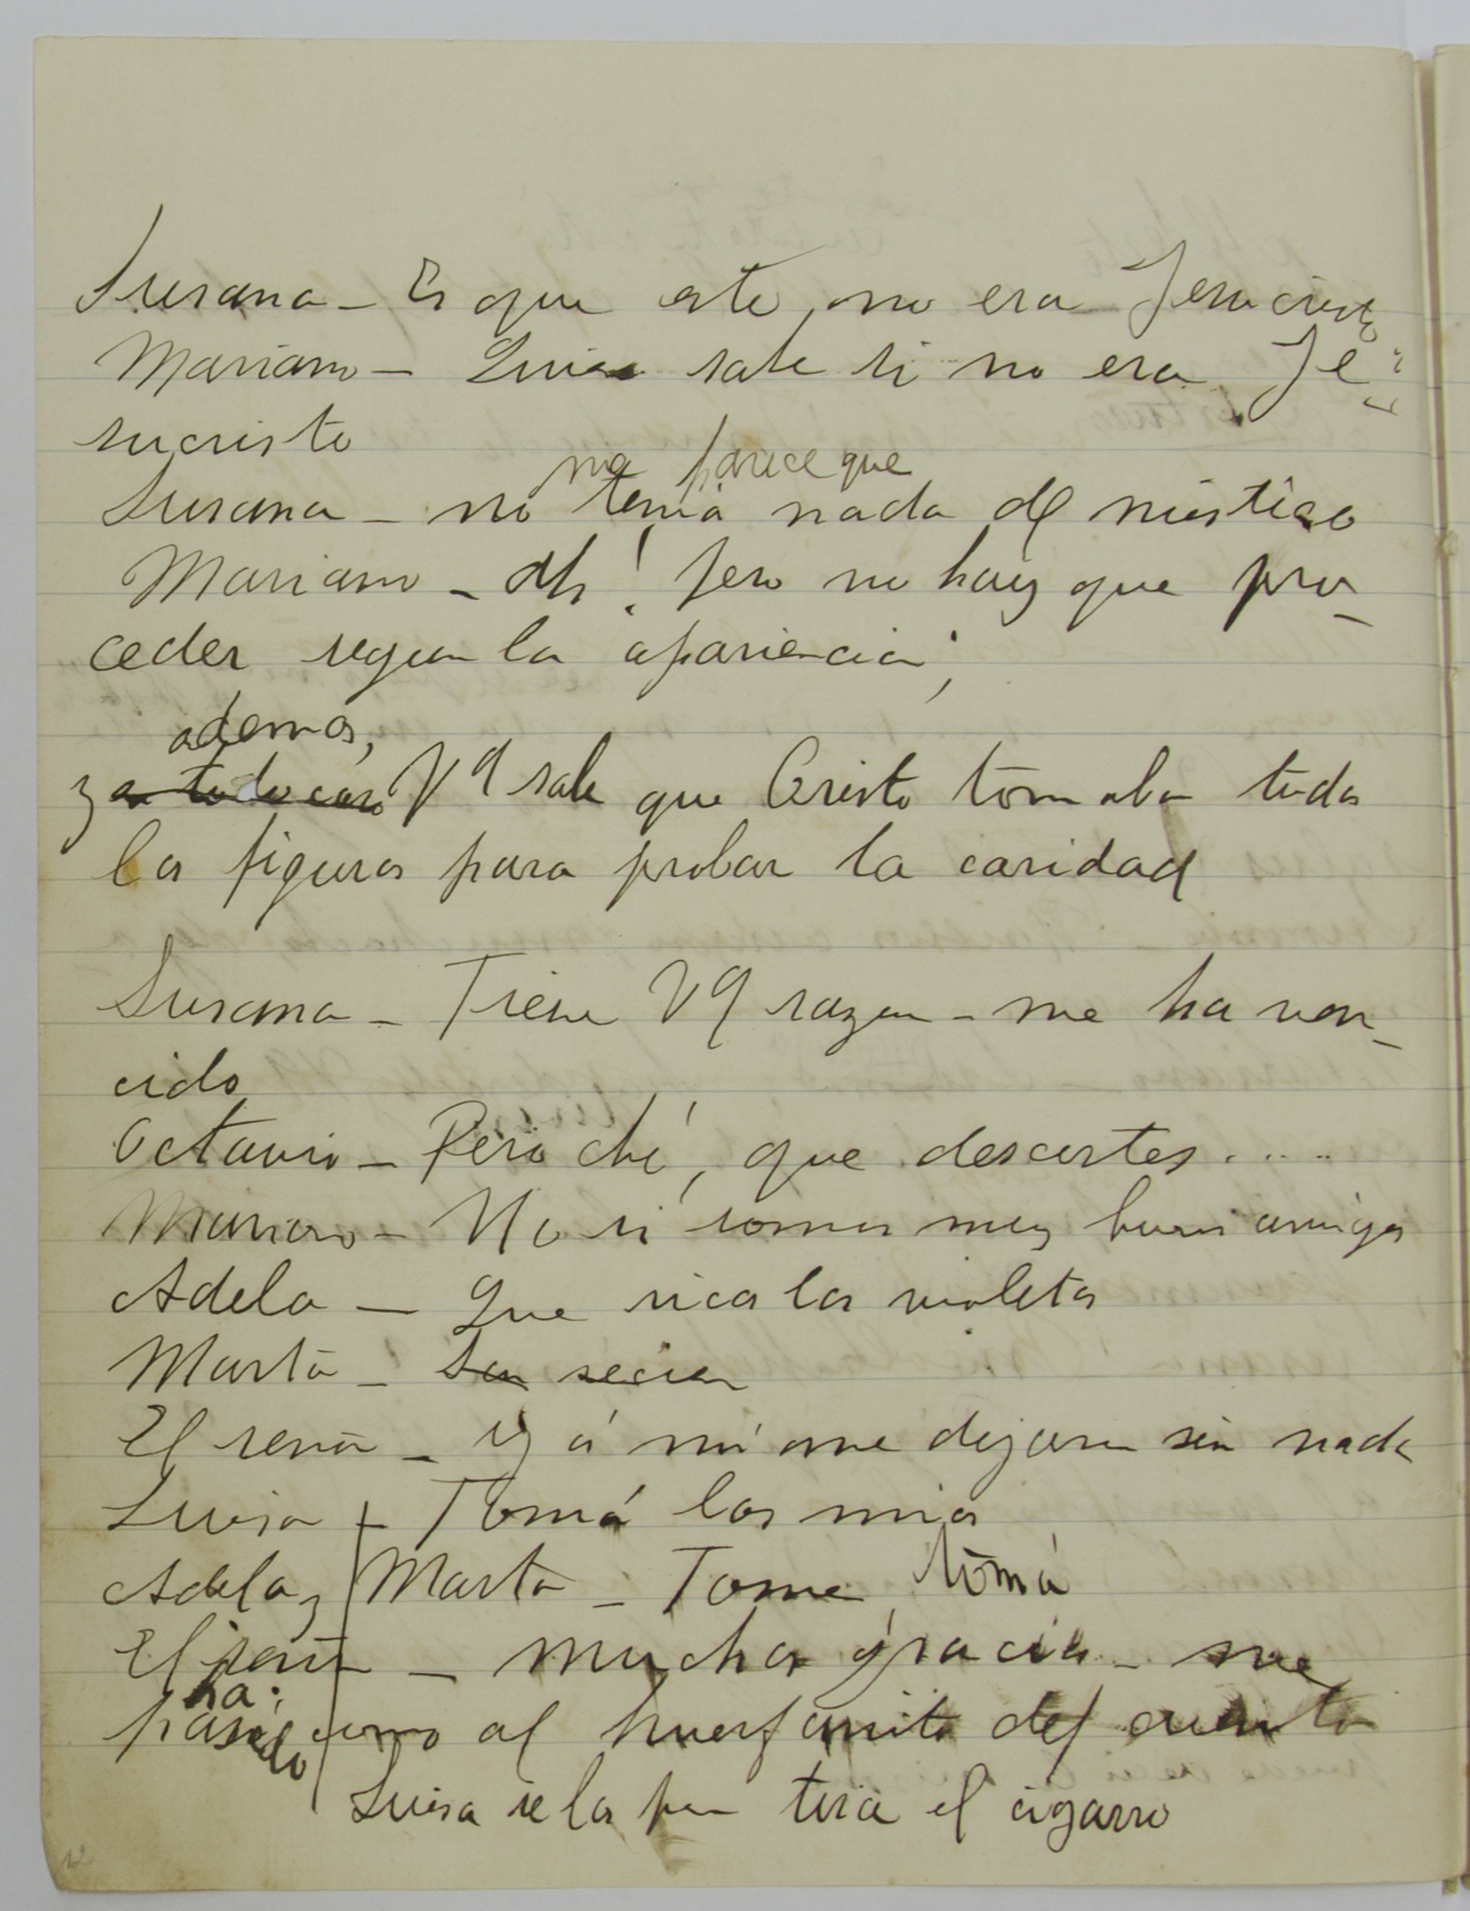 Susana - Es que este no era Jesucristo
Mariano - Quien sabe si no era Je-
sucristo
me parece que
Susana - no tenia nada de mistico
Mariano - Ah! pero no hay que pro-
ceder segun la apariencia;
ademas,
y en todo caso Vd sabe que Cristo tomaba todas
las figuras para probar la caridad
Susana - Tiene Vd razon - me ha ven-
cido
Octavio - Pero ché, que descortes.....
Mariano - No si somos muy buenos amigos
Adela - Que ricas las violetas
Marta -
El señor - y á mi me dejaron sin nada
Luisa - Tomá las mias
Adela y Marta - Tome, tomá
El señor - muchas gracias - me
ha
pasado como al huerfanito del cuento
Luisa se las tira el cigarro